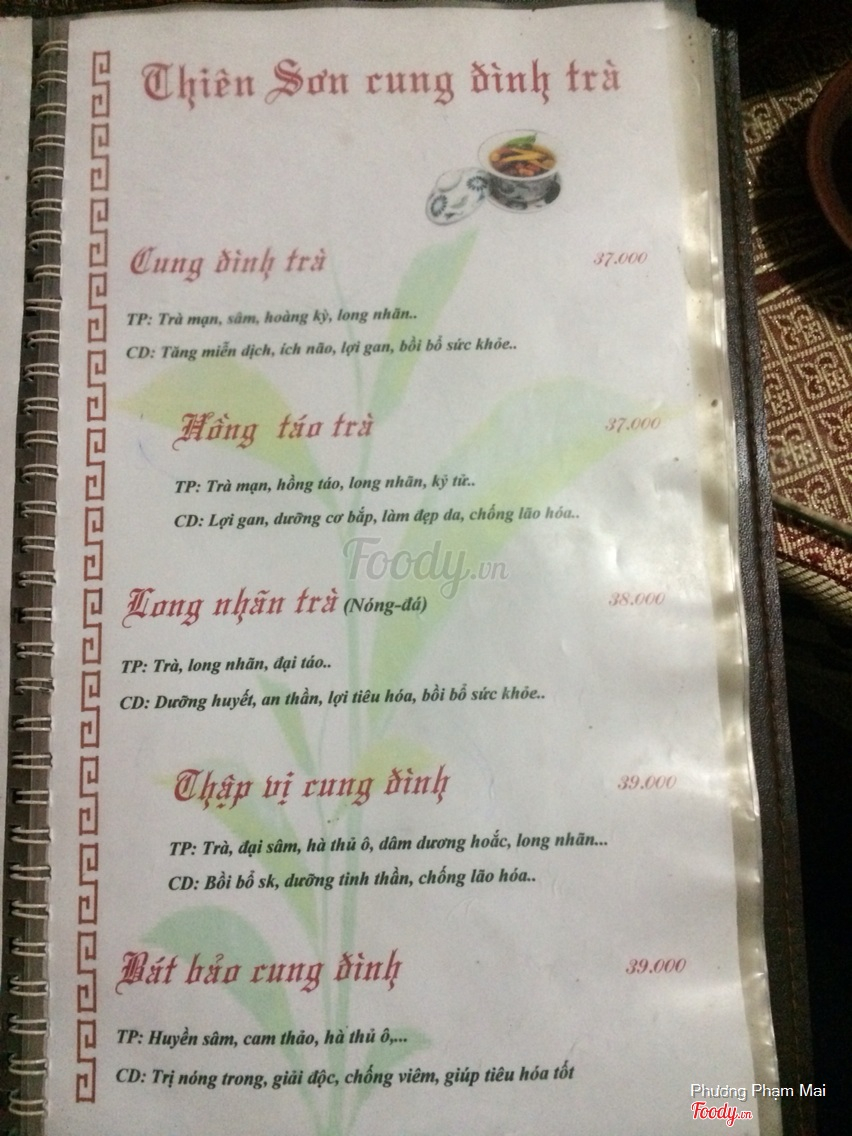 Thiên Sơn cung đình trà
Cung đình trà 37.000
TP: Trà mạn, sâm, hoàng kỳ, long nhãn..
CD: Tăng miễn dịch, ích não, lợi gan, bồi bổ sức khỏe..
Hồng táo trà 37.000
TP: Trà mạn, hồng táo, long nhãn, kỷ tử..
CD: Lợi gan, dưỡng cơ bắp, làm đẹp da, chống lão hóa..
Foody.vn
Long nhãn trà (Nóng-đá) 38.000
TP: Trà, long nhãn, đại táo..
CD: Dưỡng huyết, an thần, lợi tiêu hóa, bồi bổ sức khỏe..
Thập vị cung đình 39.000
TP: Trà, đại sâm, hà thủ ô, dâm dương hoắc, long nhãn...
CD: Bồi bổ sk, dưỡng tinh thần, chống lão hóa..
Bát bảo cung đình 39.000
TP: Huyền sâm, cam thảo, hà thủ ô,...
CD: Trị nóng trong, giải độc, chống viêm, giúp tiêu hóa tốt
Phương Phạm Mai
Foody.vn